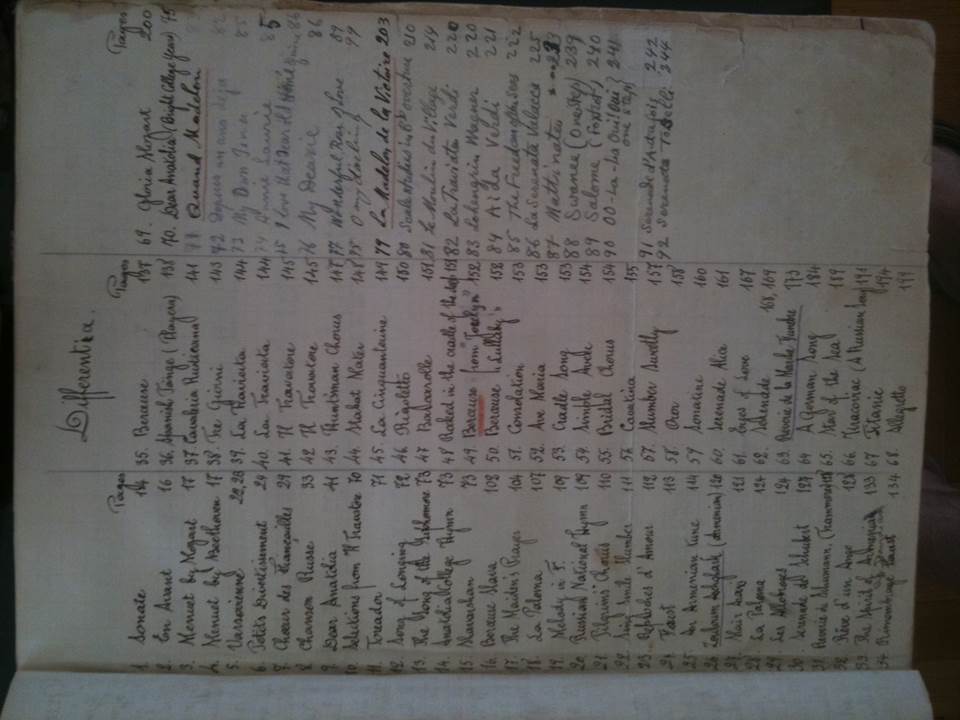 Differentia.
Pages
1. Sonate 14
2. En Avant 16
3. Menuet by Mozart 17
4. Menuet by Beethoven 18
5. Varsovienne 22, 23
6. Petits Divertissement 24
7. Chœur des Françaises 29
8. Chanson Russe 33
9. Dear Anatolia 41
10. Selections from Il Trovatore 70
11. Toreador 71
12. Song of Longing 72
13. The Song of the 73
14. Anatolia College Hymn 73
15. 73
16. Berceuse Slave 102
17. The Maiden's Prayer 104
18. La Paloma 107
19. Melody in F. 109
20. Russian National Hymn 109
21. Pilgrim's Chorus 110
22. Sing Smile Slumber 111
23. d'Amour 112
24. Faust 113
25. An Armenian tune 114
26. (Armenian) 120
27. 121
28. La Paloma 124
29. Les 124
30. Serenade de Schubert 127
31. Reverie de Schumann.
32. Rêve d'un Ange 128
33. The Spirit of Armenia 133
34. Faust 134
Pages
35. Berceuse 137
36. Spanish Tango (Players) 138
37. Cavaleria Rusticana 141
38. The 143
39. La Traviata 144
40. La Traviata 144
41. Il Trovatore 145
42. Il Trovatore 145
43. Huntsman Chorus 148
44. Stabat Mater 148
45. La Cinquantaine 149
46. Rigoletto 150
47. Barcarolle 151
48. Rocked in the cradle of the deep 151
49. Berceuse from "Jocelyn" 152
50. Berceuse "Lullaby" 152
51. Consolation 153
52. Ave Maria 153
53. Cradle Song 153
54. Simple Aveu 154
55. Bridal Chorus 154
56. Cavatina 155
57. Slumber Sweetly 157
58. 158
59. Sonatine 160
60. Serenade Alia 161
61. Eyes of Love 167
62. Serenade 168, 169
63. Reverie de la Marche Funebre 173
64. A German Song 184
65. Star of the Sea 189
66. (A Russian Song) 191
67. Titanic 194
68. Allegretto 199
Pages
69. Gloria Mozart 200
70. Dear Anatolia (Bright College Years) 75
71 Quand Madelon
72
73 My Own 85
74 Annie Laurie 85
75 I love that dear old
76 My Dearie 86
77 Wonderful Rose of Love 89
78 94
79 La Madelon de la Victoire 203
80 Scale studies in Bb 210
81 Le Moulin du Village 214
82 La Traviata Verdi 220
83 Lohengrin Wagner 220
84 Aida Verdi 221
85 The 222
86 La Serenata 225
87 Matinata
88 Swanee (One Step) 239
89 Salome (Foxtrot) 240
90 OO-La-La Ouillai 241
one step
91 Serenade d'Autrefois 242
92 Serenata Toselli 244